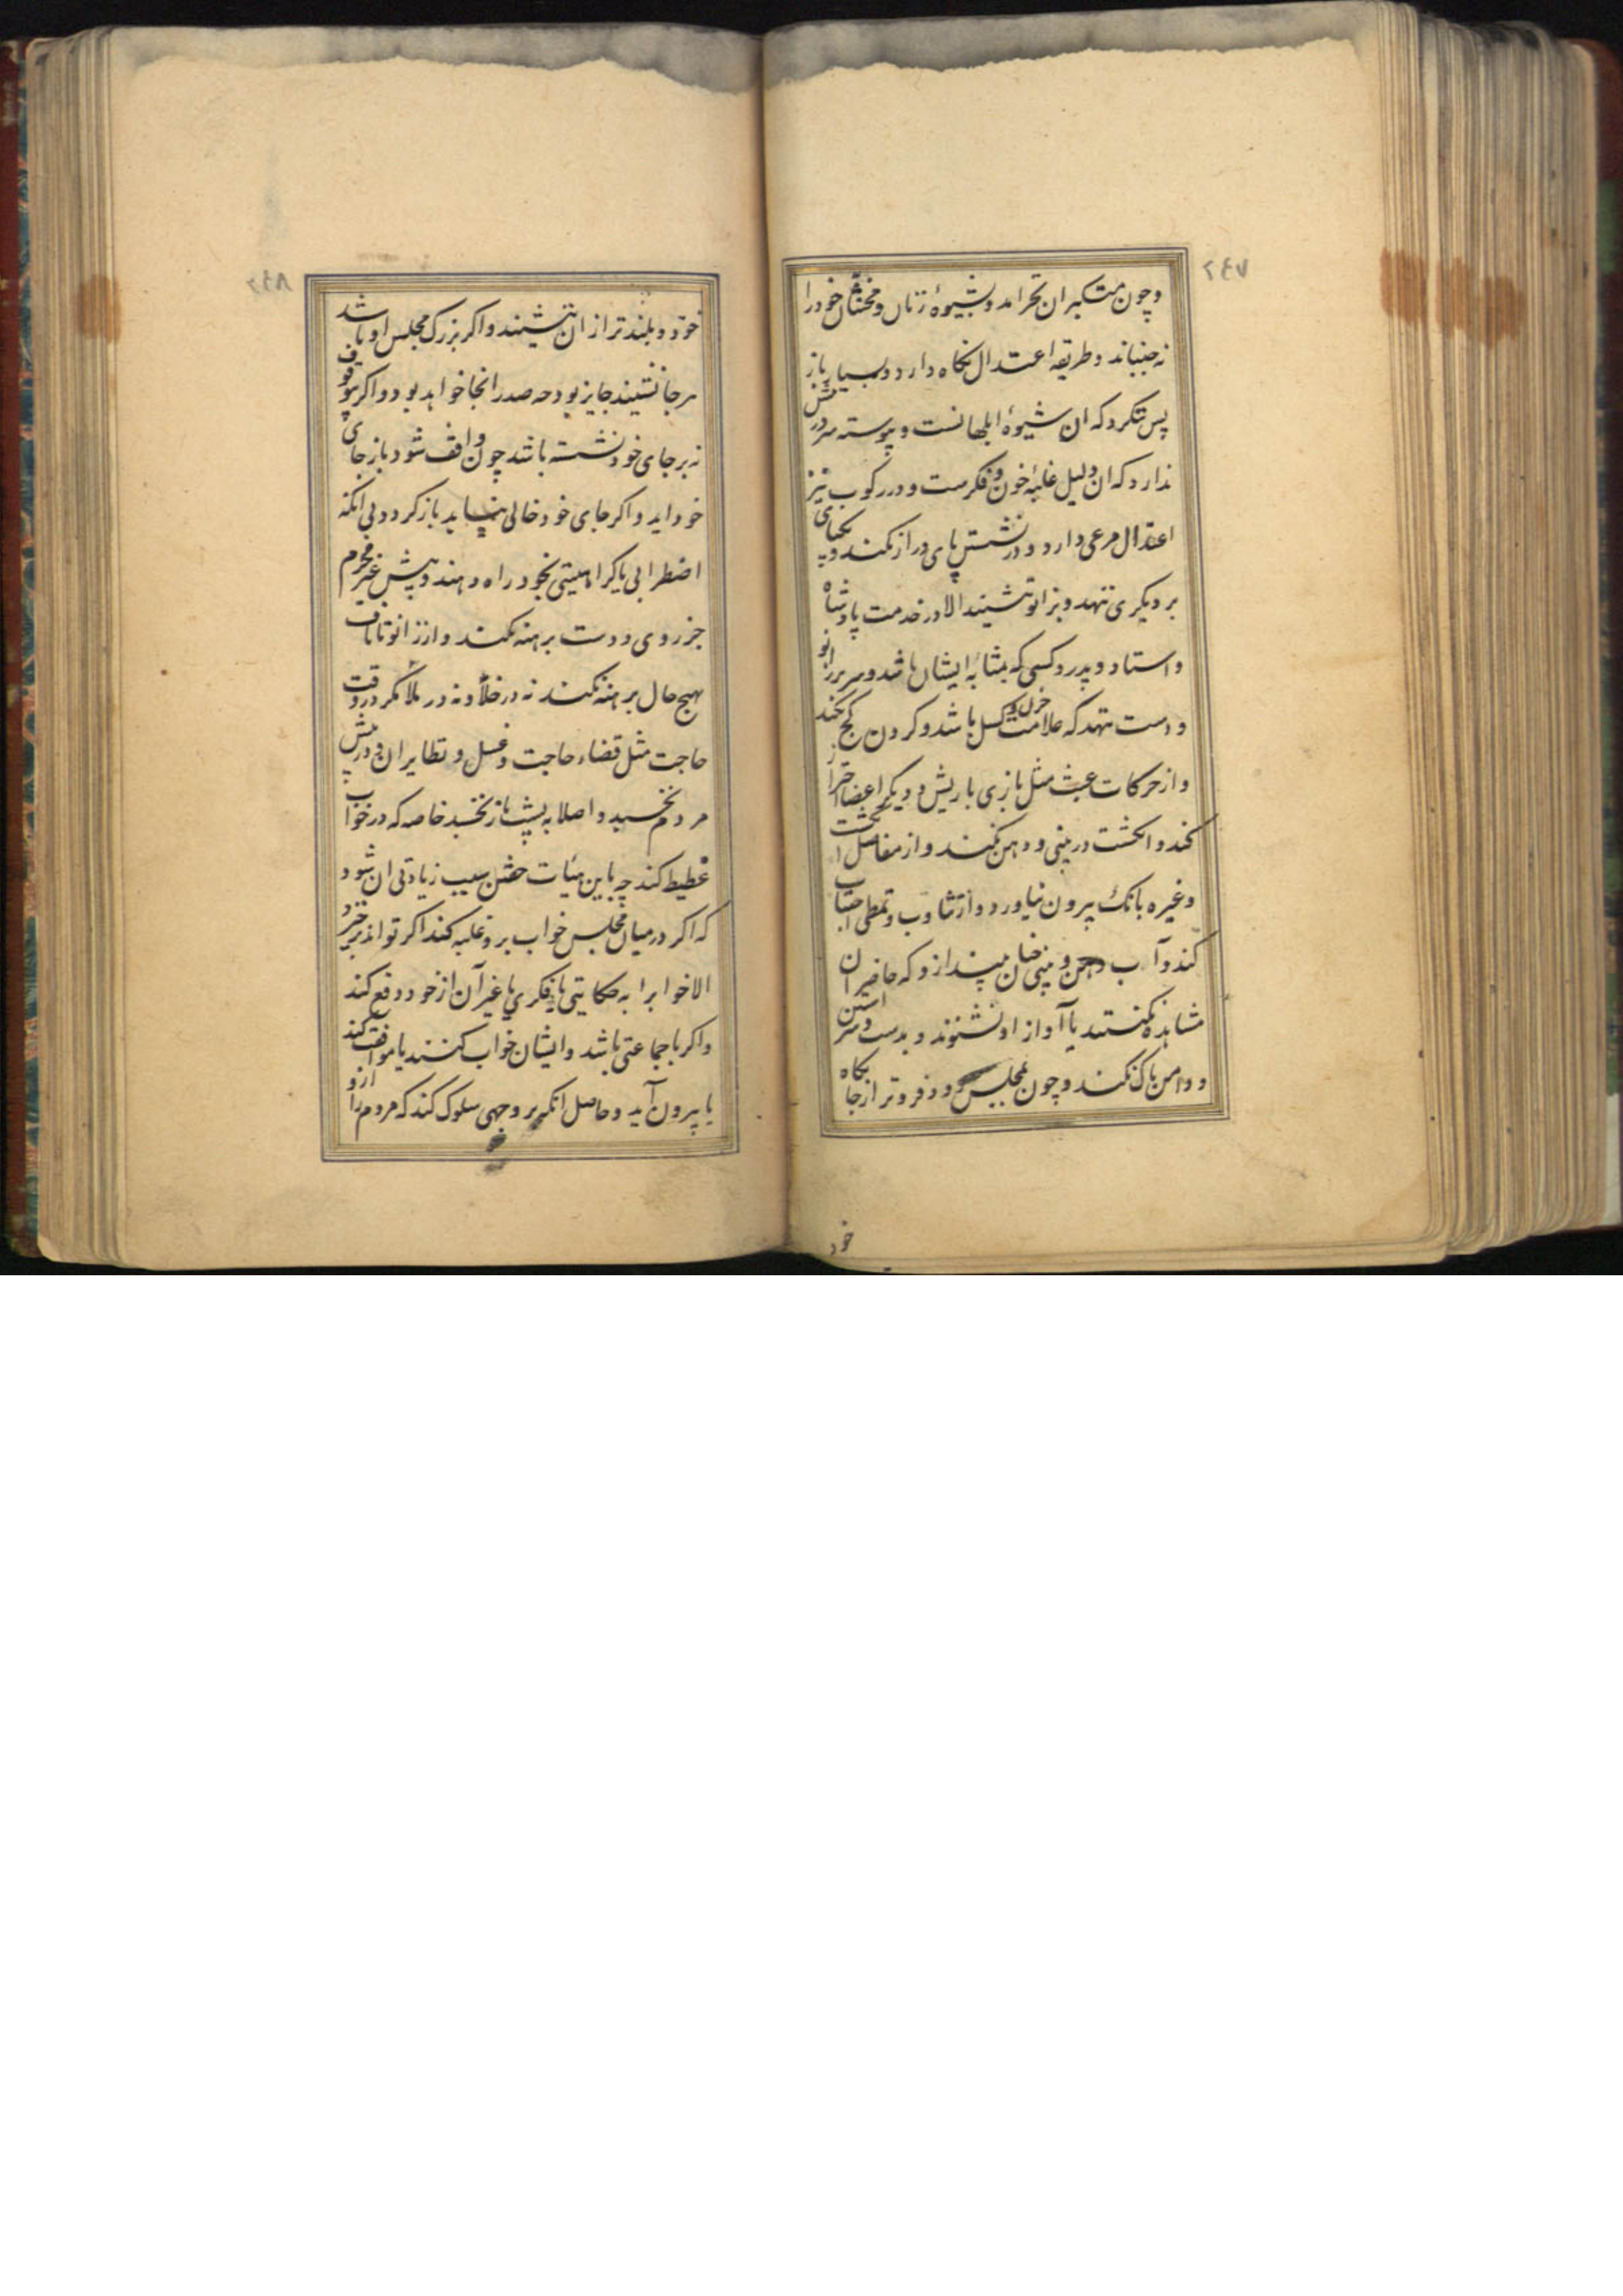 ٢٤٧
وچون متکبران نخرامد وبشیوۀ زنان ومخنثان خود را
نه جنباند وطریقه اعتدال نکاه دارد وبسیار باز
پس ننکرد که ان شیوۀ ابلهانست وپیوسته سر در پیش
ندارد که ان دلیل غلبۀ خون وفکرست ودر رکوب نیز
اعتدال مرعی دارد ودر نشستن پای دراز نکند ویکپای
بر دیکری ننهد وبزانو ننشیند الا در خدمت پادشاه
واستاد وپدر وکسی که بمثابۀ ایشان باشد وسر بر زانو
ودست ننهد که علامت حزن وکسل باشد وکردن کج نکند
واز حرکات عبث مثل بازی باریش ودیکر اعضا احتراز
کند وانکشت در بینی ودهن نکند واز مفاصل انکشت
وغیره بانک بیرون نیاورد واز تثاوب وتمطی اجتناب
کند وآب دهن وبینی چنان نیندازد که حاضران
مشاهده کنند یا آواز او نشنوند وبدست وسر استین
ودامن پاک نکند وچون بمجلس رود فروتر از جایکاه
خود
٢٤٨
خود وبلندتر از ان ننشیند واکر بزرک مجلس او باشد
هر جا نشیند جایز بود چه صدر انجا خواهد بود واکر بوقوف
نه بر جای خود نشسته باشد چون واقف شود باز جای
خود اید واکر جای خود خالی نیابد باز کردد بی انکه
اضطرابی یا کراهیتی بخود راه دهند وپیش غیر محرم
جز روی ودست برهنه نکند واز زانو تا ناف
بهیچ حال برهنه نکند نه در خلا ونه در ملا مکر در وقت
حاجت مثل قضاء حاجت وغسل ونظایر ان ودر پیش
مردم نخسبد واصلا به پشت باز نخسبد خاصه که در خواب
غطیط کند چه باین هیات خفتن سبب زیادتی ان شود
که اکر در میان مجلس خواب برو غلبه کند اکر تواند برخیزد
الا خوابرا به حکایتی یا فکری یا غیر آن از خود دفع کند
واکر با جماعتی باشد وایشان خواب کنند یا موافقت کند
یا بیرون آید وحاصل انکه بر وجهی سلوک کند که مردم را ازو